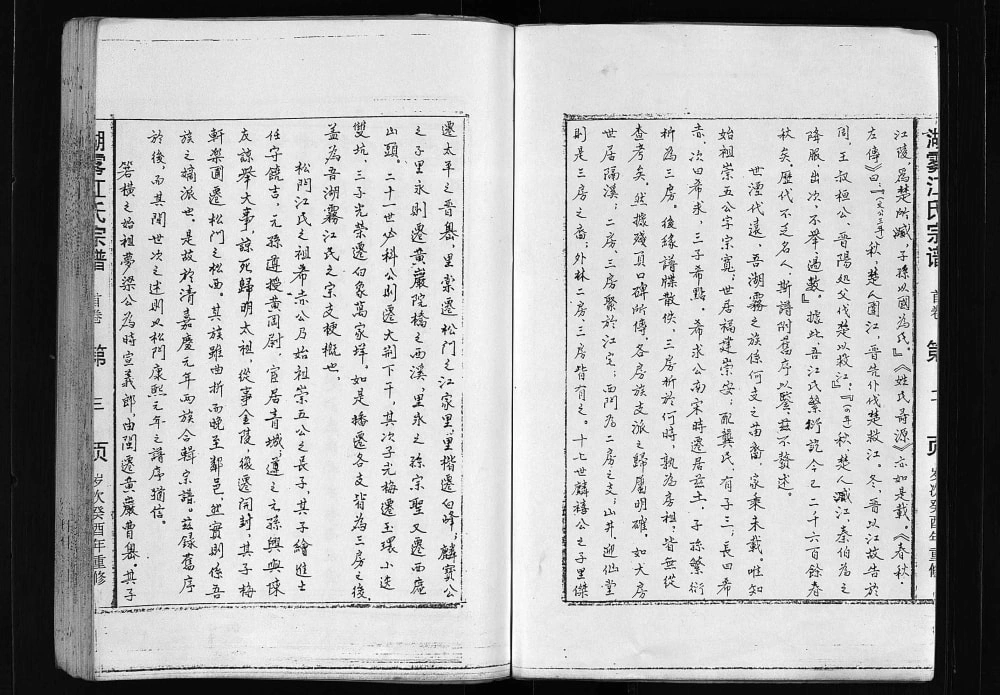 江陵，爲楚所滅，子孫以國為氏。』《姓氏尋源》亦如是載。《春秋·
左傳》曰：『（文公三年）秋，楚人圍江，晋先仆伐楚救江。冬，晋以江故告於
周，王叔桓公、晋陽処父伐楚以救江；』『（四年）秋，楚人滅江，秦伯為之
降服，出次，不举，過數』。據此吾江氏繁衍訖今已二十六百餘春
秋矣，歷代不乏名人，斯譜附舊序以鑒，茲不贅述。
世湮代遠，吾湖霧之族係何支之苗裔，家乘未載，唯知
始祖崇五公字宗寬，世居福建崇安，配龔氏，有子三，長曰希
赤，次曰希求，三子希點。希求公南宋時遷居兹土，子孫繁衍
析為三房。後緣譜牒散佚，三房析於何時，孰為房祖，皆無從
查考矣。然據殘頁口碑所傳，各房族支派之歸屬明確，如大房
世居隔溪；二房、三房聚於江宅，西門為二房之支；山井、迎仙堂
則是三房之裔；外林二房、三房皆有之。十七世麟禧公之子里傑
遷太平之晋嶴，里棠遷松門之江家里，里楷遷白峰；麟寶公
之子里永則遷黄巖院橋之西溪，里永之孫宗聖又遷西庵
山頭。二十一世必科公則遷大荆下干，其次子光梅遷玉環小迭
雙坑，三子光榮遷白象萬家垟。如是播遷各支，皆為三房之後，
蓋為吾湖霧江氏之宗支梗概也。
松門江氏之祖希赤公乃始祖崇五公之長子，其子繪進士
任守饒吉，元孫遵授黄岡尉，官居青城；遵之元孫興與陳
友諒举大事，諒死歸明太祖，從事金陵，後遷開封，其子梅
軒樂圃遷松門之松西。其族雖曲折而晚至鄰邑，然實則係吾
族之嫡派世。是故於清嘉慶元年两族合輯宗譜。兹録舊序
於後，而其間世次之述則以松門康熙元年之譜序猶信。
箬横之始祖夢梁公為時宣義郎，由閩遷黄巖曹嶴。其子
湖雾江氏宗谱
首卷
第
页
岁次癸酉年重修
湖雾江氏宗谱
首卷
第
三
页
岁次癸酉年重修